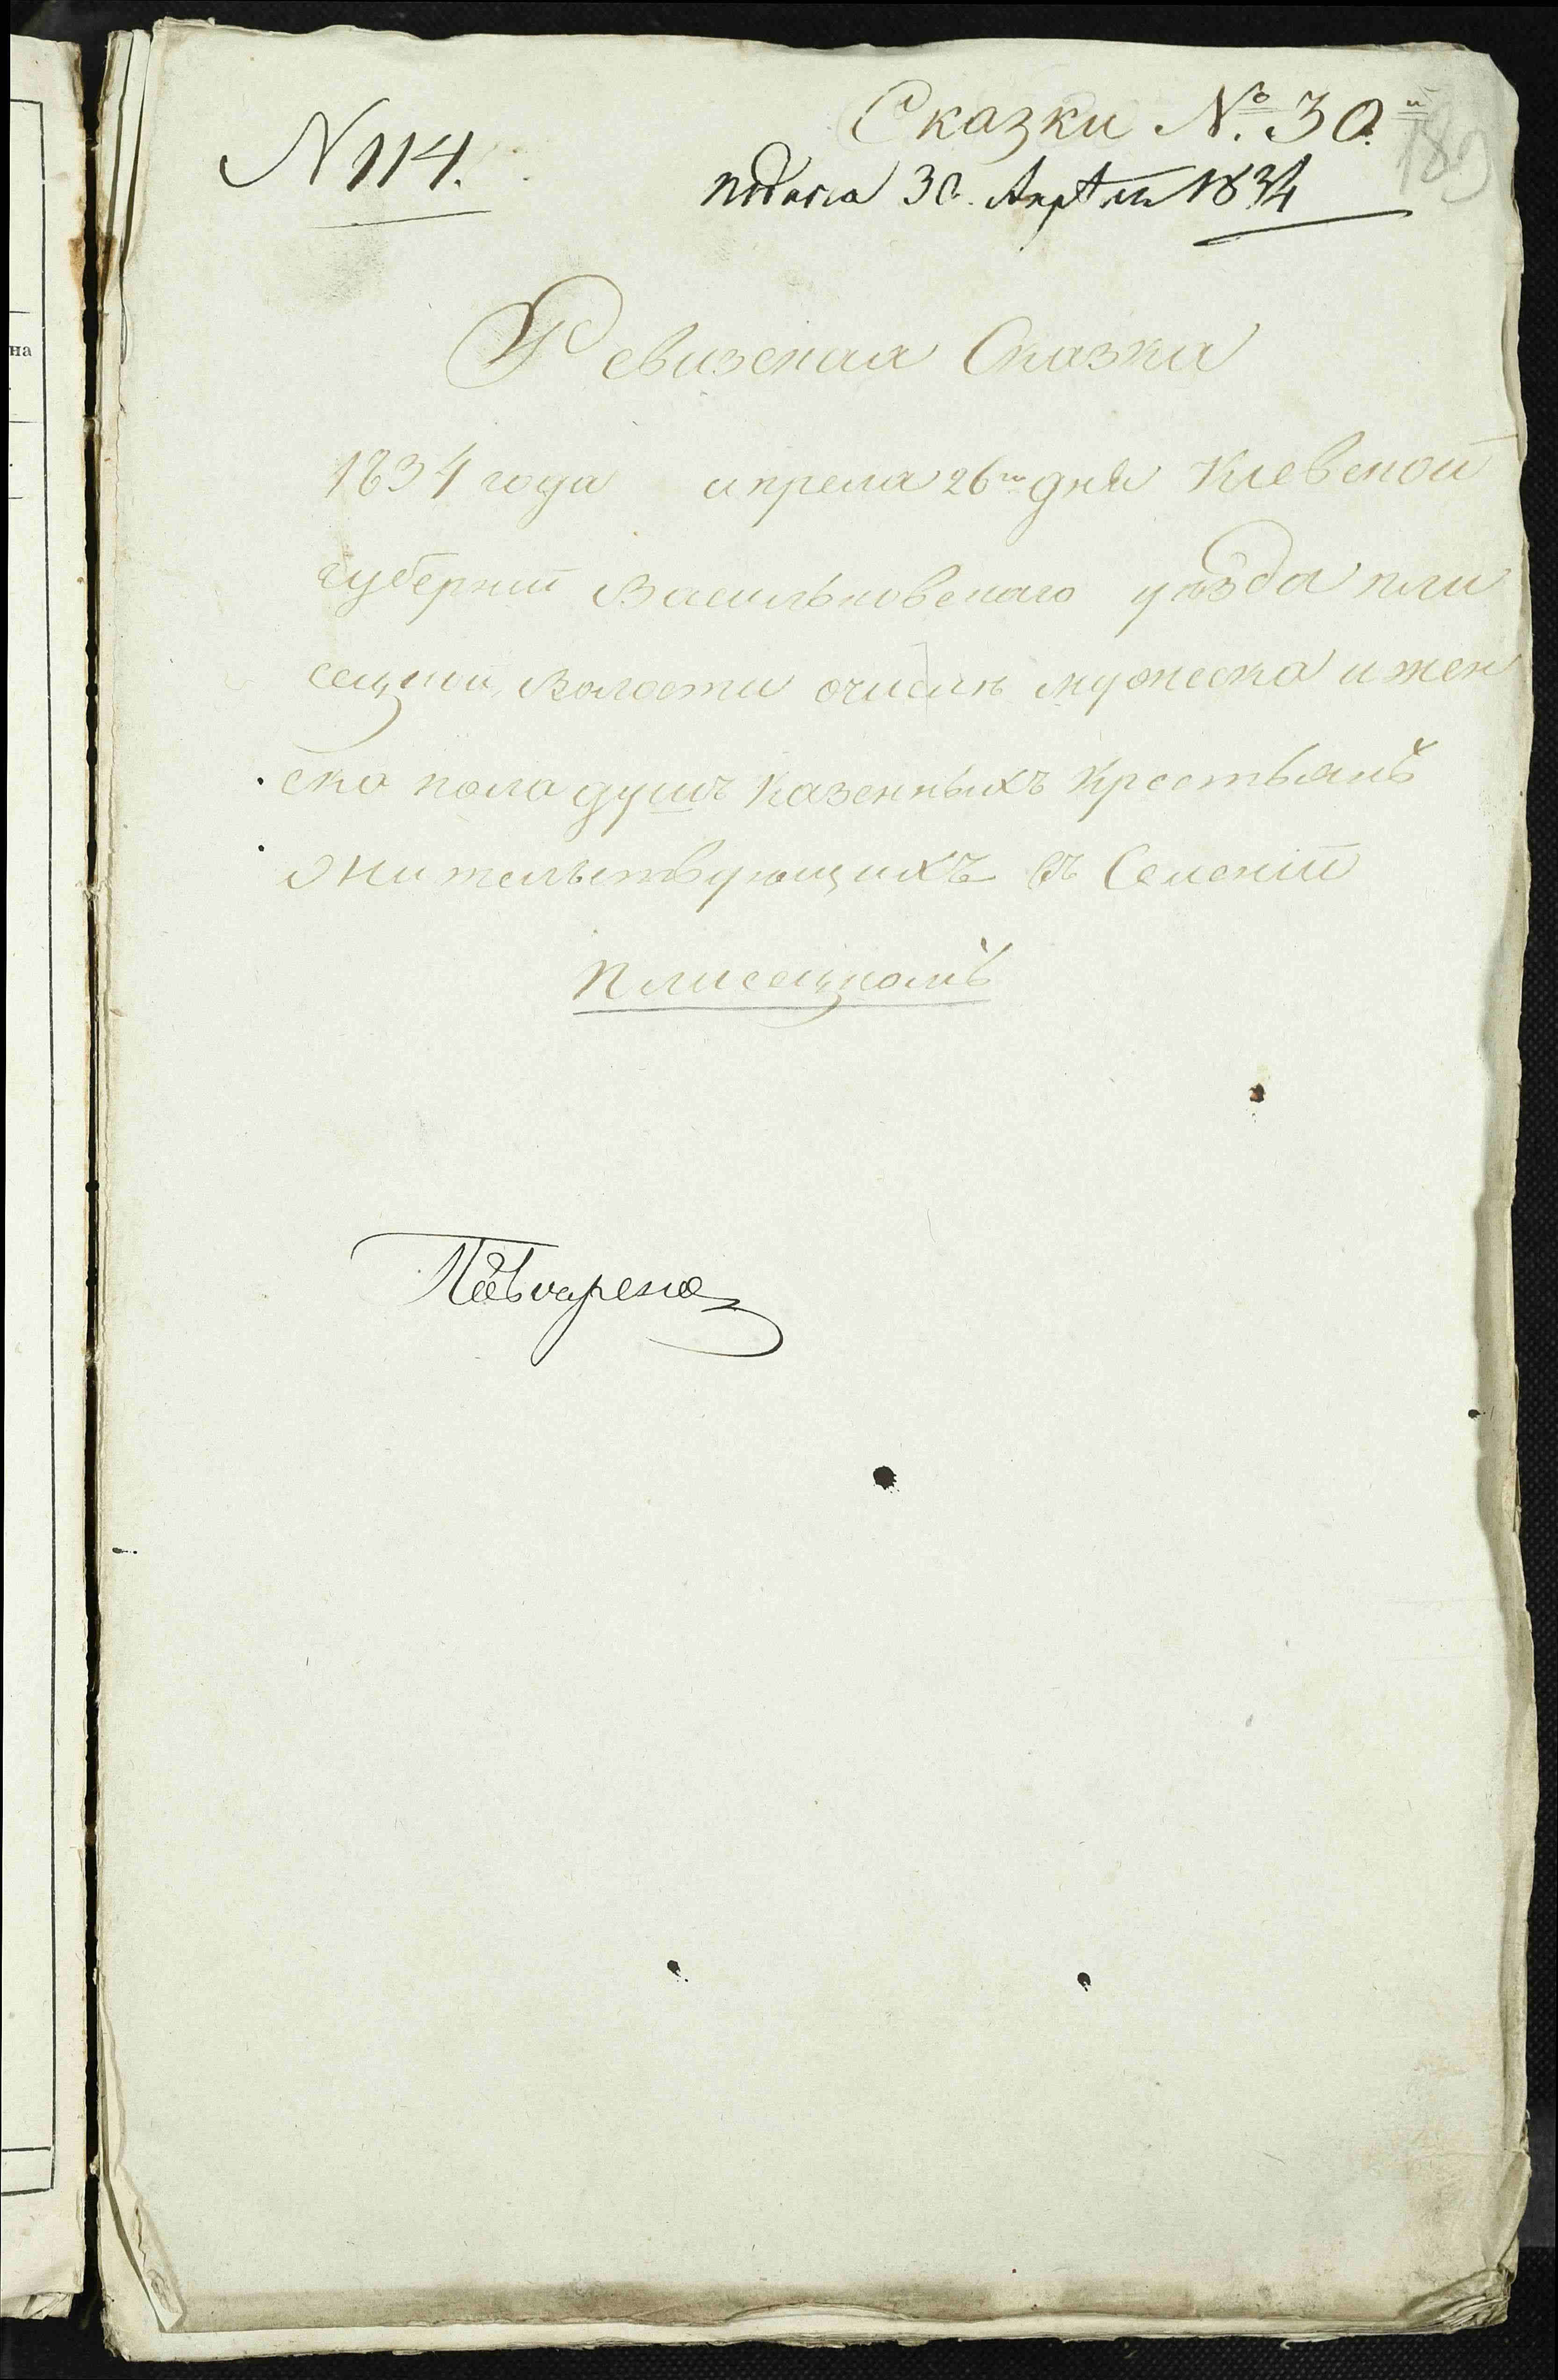 на
N 114.
Сказки №. 30.й
189
подана 30. Апрѣля 1834
Ревизская Сказка
1834 года апреля 26го дня Киевской
губернии Васильковскаго уѣзда пли
сецкой Волости о числѣ мужеска и жен
ска пола душъ казенныхъ крестьянъ
жительствующихъ въ Селении
Плисецкомъ